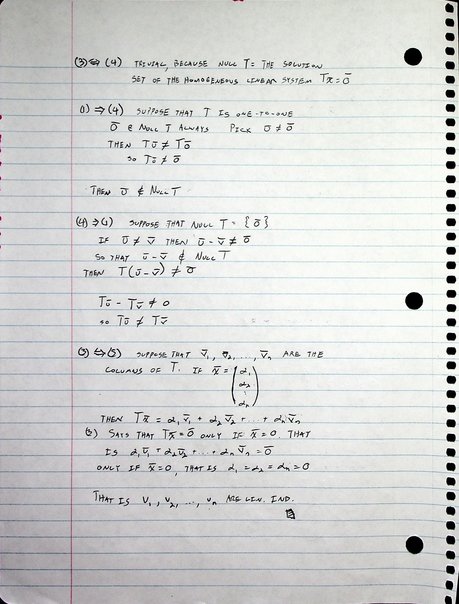 (3) ⇔ (4) TRIVIAL, BECAUSE NULL T = THE SOLUTION
SET OF THE HOMOGENEOUS LINEAR SYSTEM Tx̄ = 0̄
(1) ⇒ (4) SUPPOSE THAT T IS ONE-TO-ONE
0̄ ∈ NULL T ALWAYS PICK ū ≠ 0̄
THEN Tū ≠ T0̄
SO Tū ≠ 0̄
THEN ū ∉ NULL T
(4) ⇒ (1) SUPPOSE THAT NULL T = {0̄}
IF ū ≠ v̄ THEN ū - v̄ ≠ 0̄
SO THAT ū - v̄ ∉ NULL T
THEN T(ū - v̄) ≠ 0̄
Tū - Tv̄ ≠ 0
SO Tū ≠ Tv̄
(3) ⇔ (5) SUPPOSE THAT v̄₁, v̄₂, ..., v̄ₙ ARE THE
COLUMNS OF T. IF x̄ = (α₁
α₂
⋮
αₙ)
THEN Tx̄ = α₁v̄₁ + α₂v̄₂ + ... + αₙv̄ₙ
(3) SAYS THAT Tx̄ = 0̄ ONLY IF x̄ = 0. THAT
IS α₁v̄₁ + α₂v̄₂ + ... + αₙv̄ₙ = 0̄
ONLY IF x̄ = 0, THAT IS α₁ = α₂ = αₙ = 0
THAT IS v₁, v₂, ..., vₙ ARE LIN. IND.